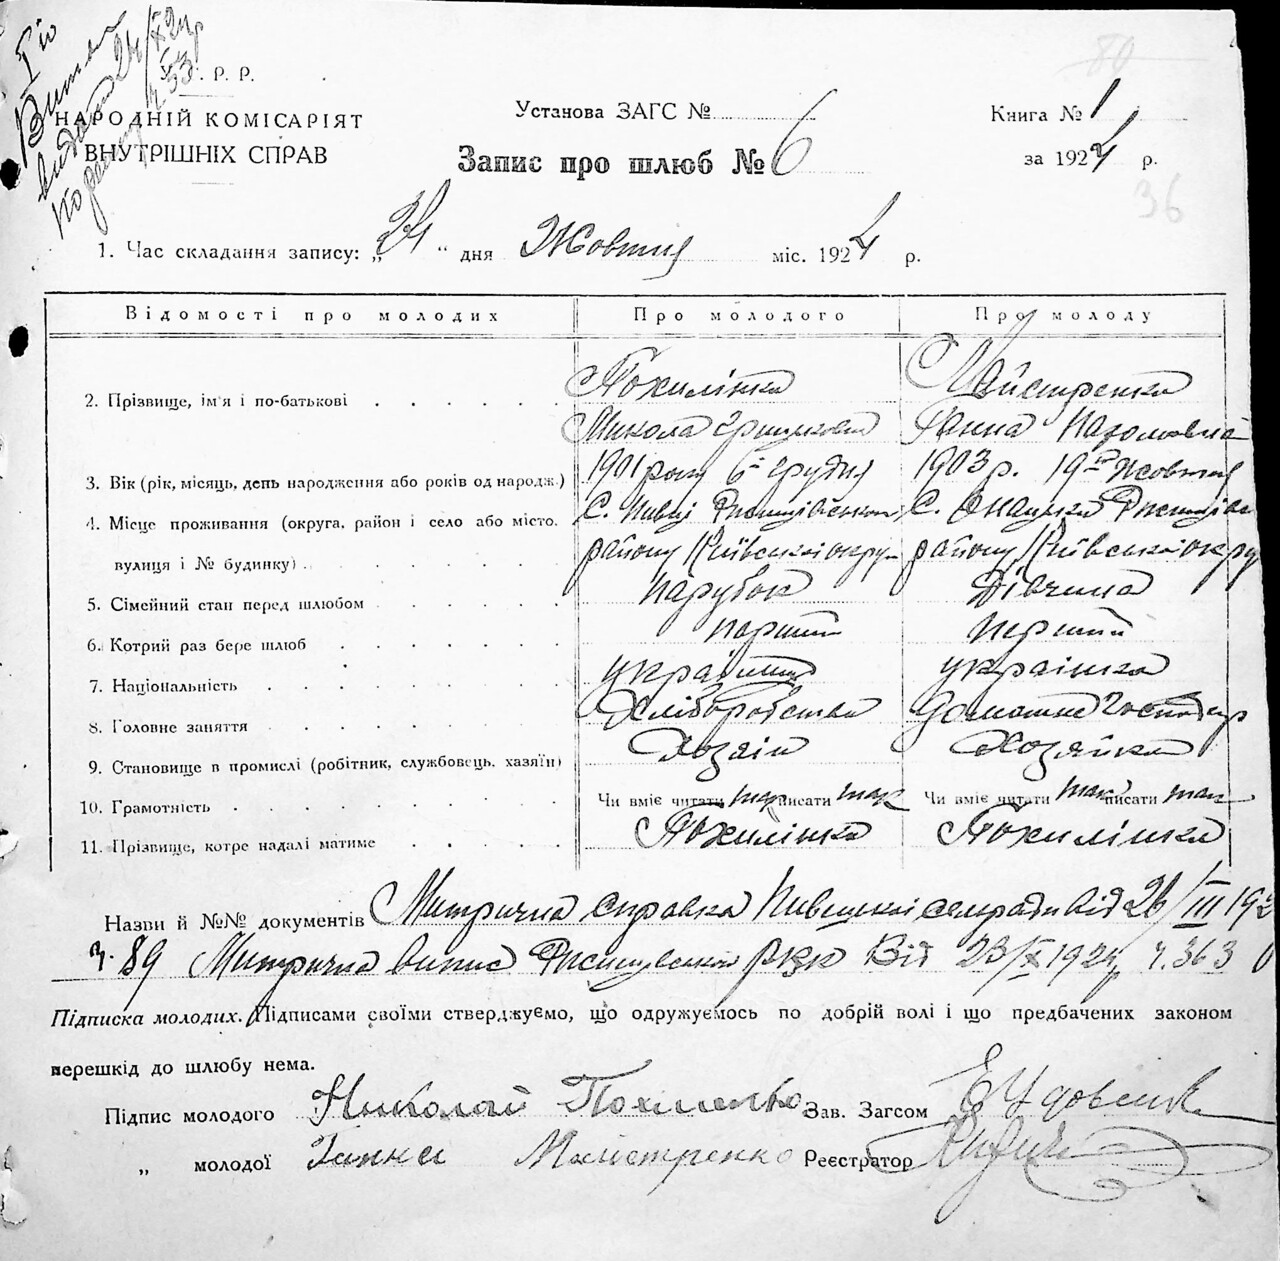 Витяг
видано 24/X 24 р
У. Р. Р.
НАРОДНІЙ КОМІСАРІЯТ
ВНУТРІШНІХ СПРАВ
Установа ЗАГС №
Запис про шлюб № 6
Книга № 1
за 1924 р.
36
1. Час складання запису: „24“ дня Жовтня міс. 1924 р.
Відомості про молодих Про молодого Про молоду
2. Прізвище, ім'я і по-батькові Похилінка Майстренка
Микола Ганна
3. Вік (рік, місяць, день народження або років од народж.) 1901 року 6 грудня 1903 р. 19 Жовтня
4. Місце проживання (округа, район і село або місто, С. Пивці С.
вулиця і № будинку) району Київської округ району Київської округ
5. Сімейний стан перед шлюбом парубок Дівчина
6. Котрий раз бере шлюб перший перший
7. Національність українець українка
8. Головне заняття Хліборобство Домашнє господар
9. Становище в промислі (робітник, службовець, хазяїн) Хозаїн Хозяйка
10. Грамотність Чи вміє читати так писати так Чи вміє читати так писати так
11. Прізвище, котре надалі матиме Похилінка Похилінка
Назви й №№ документів Метрична справка Пивецкої сельради від 26/III 192
ч. 89 Метрична випис від 23/X 1924 р ч. 363
Підписка молодих. Підписами своїми стверджуємо, що одружуємось по добрій волі і що предбачених законом
перешкід до шлюбу нема.
Підпис молодого Николай Похиленко Зав. Загсом
„ молодої Ганна Майстренко Реєстратор